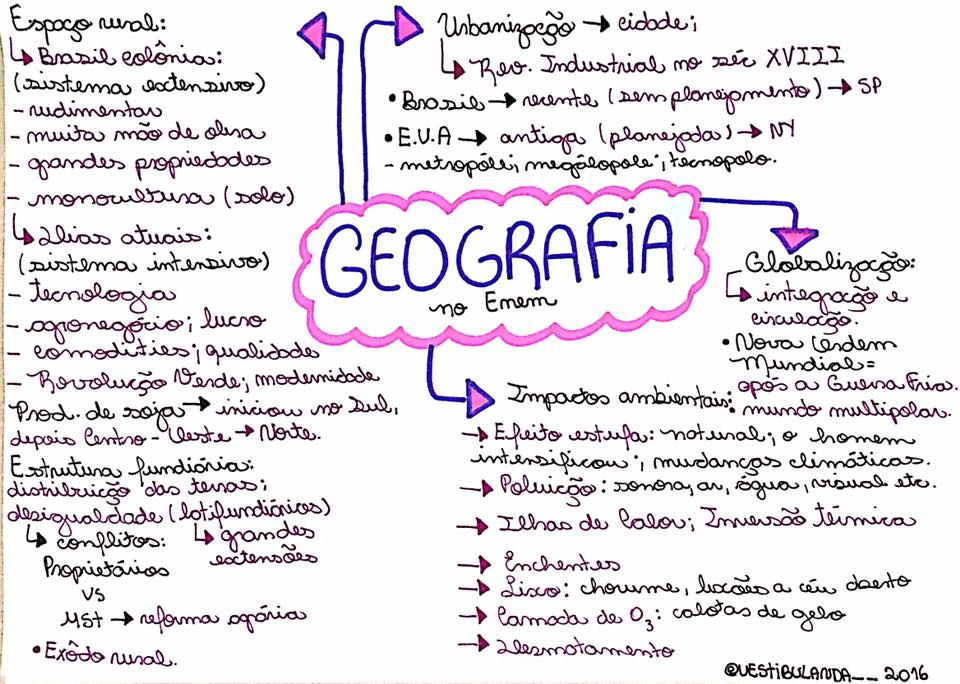 Espaço rural:
↳ Brasil colônia:
(sistema extensivo)
- rudimentar
- muita mão de obra
- grandes propriedades
- monocultura (solo)
↳ Dias atuais:
(sistema intensivo)
- tecnologia
- agronegócio; lucro
- comodities; qualidade
- Revolução Verde; modernidade
Prod. de soja → iniciou no Sul,
depois Centro-Oeste → Norte.
Estrutura fundiária:
distribuição das terras;
desigualdade (latifundiários)
↳ conflitos: ↳ grandes
extensões
Proprietários
vs
MST → reforma agrária
• Exôdo rural.
Urbanização → cidade;
↳ Rev. Industrial no séc XVIII
• Brasil → recente (sem planejamento) → SP
• E.U.A → antiga (planejada) → NY
- metrópole; megálopole; tecnopolo.
GEOGRAFIA
no Enem
Globalização:
↳ integração e
circulação.
• Nova Ordem
Mundial =
após a Guerra Fria.
mundo multipolar.
Impactos ambientais:
→ Efeito estufa: natural; o homem
intensificou; mudanças climáticas.
→ Poluição: sonora, ar, água, visual etc.
→ Ilhas de Calor; Inversão térmica
→ Enchentes
→ Lixo: chorume, lixões a céu aberto
→ Camada de O₃: calotas de gelo
→ Desmatamento
@VESTIBULANDA__ 2016